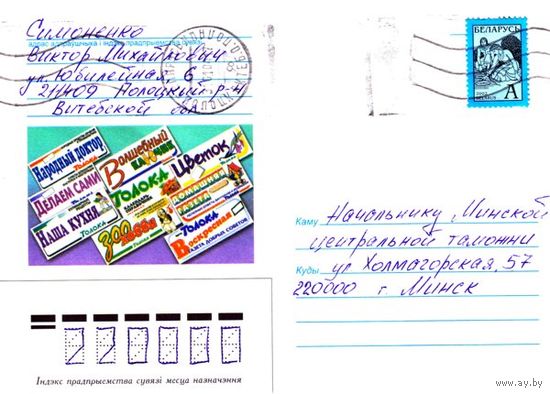 Симоненко
адрас адпраўшчыка і індэкс прадпрыемства сувязі
Виктор Михайлович
ул. Юбилейная, 6
211409 Полоцкий р-н
Витебской обл
БЕЛАРУСЬ
2002
А
Народный доктор
Толока
Делаем сами
Толока
Наша кухня
Толока
Волшебный
Толока
Цветок
Домашняя газета
Толока
Воскресная
газета добрых советов
Каму Начальнику Минской
центральной таможни
Куды ул Холмагорская, 57
220000 г. Минск
220000
Індэкс прадпрыемства сувязі месца назначэння
www.ay.by